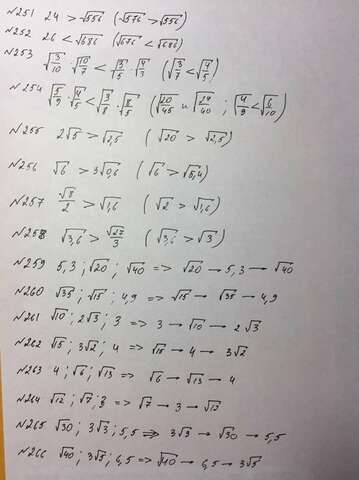 N251 24 > √556 (√576 > √556)
N252 26 < √686 (√676 < √686)
N253 √3/10 · √10/7 < √3/5 · √4/3 (√3/7 < √4/5)
N254 √5/9 · √4/5 < √3/8 · √8/5 (√20/45 и √24/40 ; √4/9 < √6/10)
N255 2√5 > √2,5 (√20 > √2,5)
N256 √6 > 3√0,6 (√6 > √5,4)
N257 √8/2 > √1,6 (√2 > √1,6)
N258 √3,6 > √27/3 (√3,6 > √3)
N259 5,3 ; √20 ; √40 => √20 → 5,3 → √40
N260 √35 ; √15 ; 4,9 => √15 → √35 → 4,9
N261 √10 ; 2√3 ; 3 => 3 → √10 → 2√3
N262 √15 ; 3√2 ; 4 => √15 → 4 → 3√2
N263 4 ; √6 ; √13 => √6 → √13 → 4
N264 √12 ; √7 ; 3 => √7 → 3 → √12
N265 √30 ; 3√3 ; 5,5 => 3√3 → √30 → 5,5
N266 √40 ; 3√5 ; 6,5 => √40 → 6,5 → 3√5